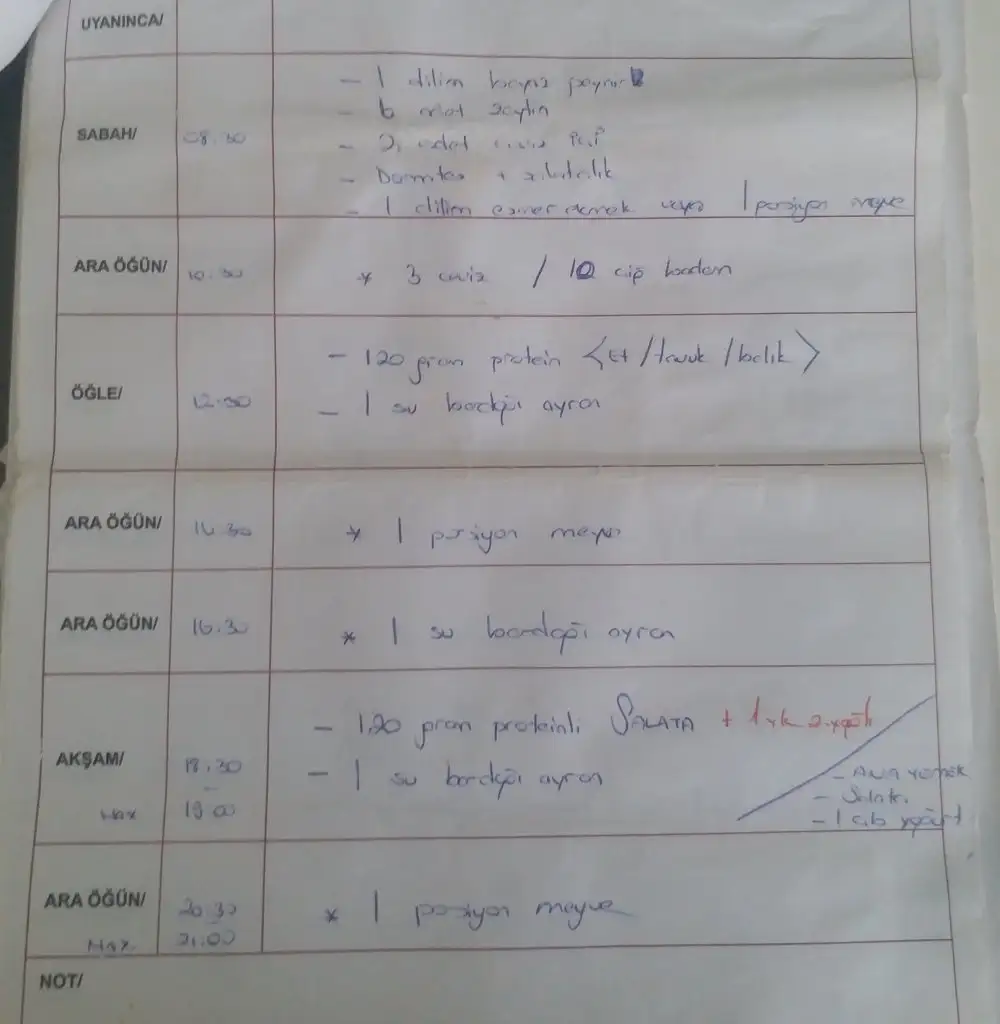 UYANINCA/
SABAH/ 08.30
- 1 dilim beyaz peynir
- 6 adet zeytin
- 2 adet ceviz içi
- Domates + salatalık
- 1 dilim esmer ekmek veya 1 porsiyon meyve
ARA ÖĞÜN/ 10.30 * 3 ceviz / 10 çiğ badem
ÖĞLE/ 12.30
- 120 gram protein <Et / tavuk / balık>
- 1 su bardağı ayran
ARA ÖĞÜN/ 14.30 * 1 porsiyon meyve
ARA ÖĞÜN/ 16.30 * 1 su bardağı ayran
AKŞAM/ 18.30
- 120 gram proteinli SALATA + 1 yk z.yağlı
- 1 su bardağı ayran
max 19.00
- ANA YEMEK
- Salata
- 1 yoğurt
ARA ÖĞÜN/ 20.30 * 1 porsiyon meyve
MAX. 21.00
NOT/